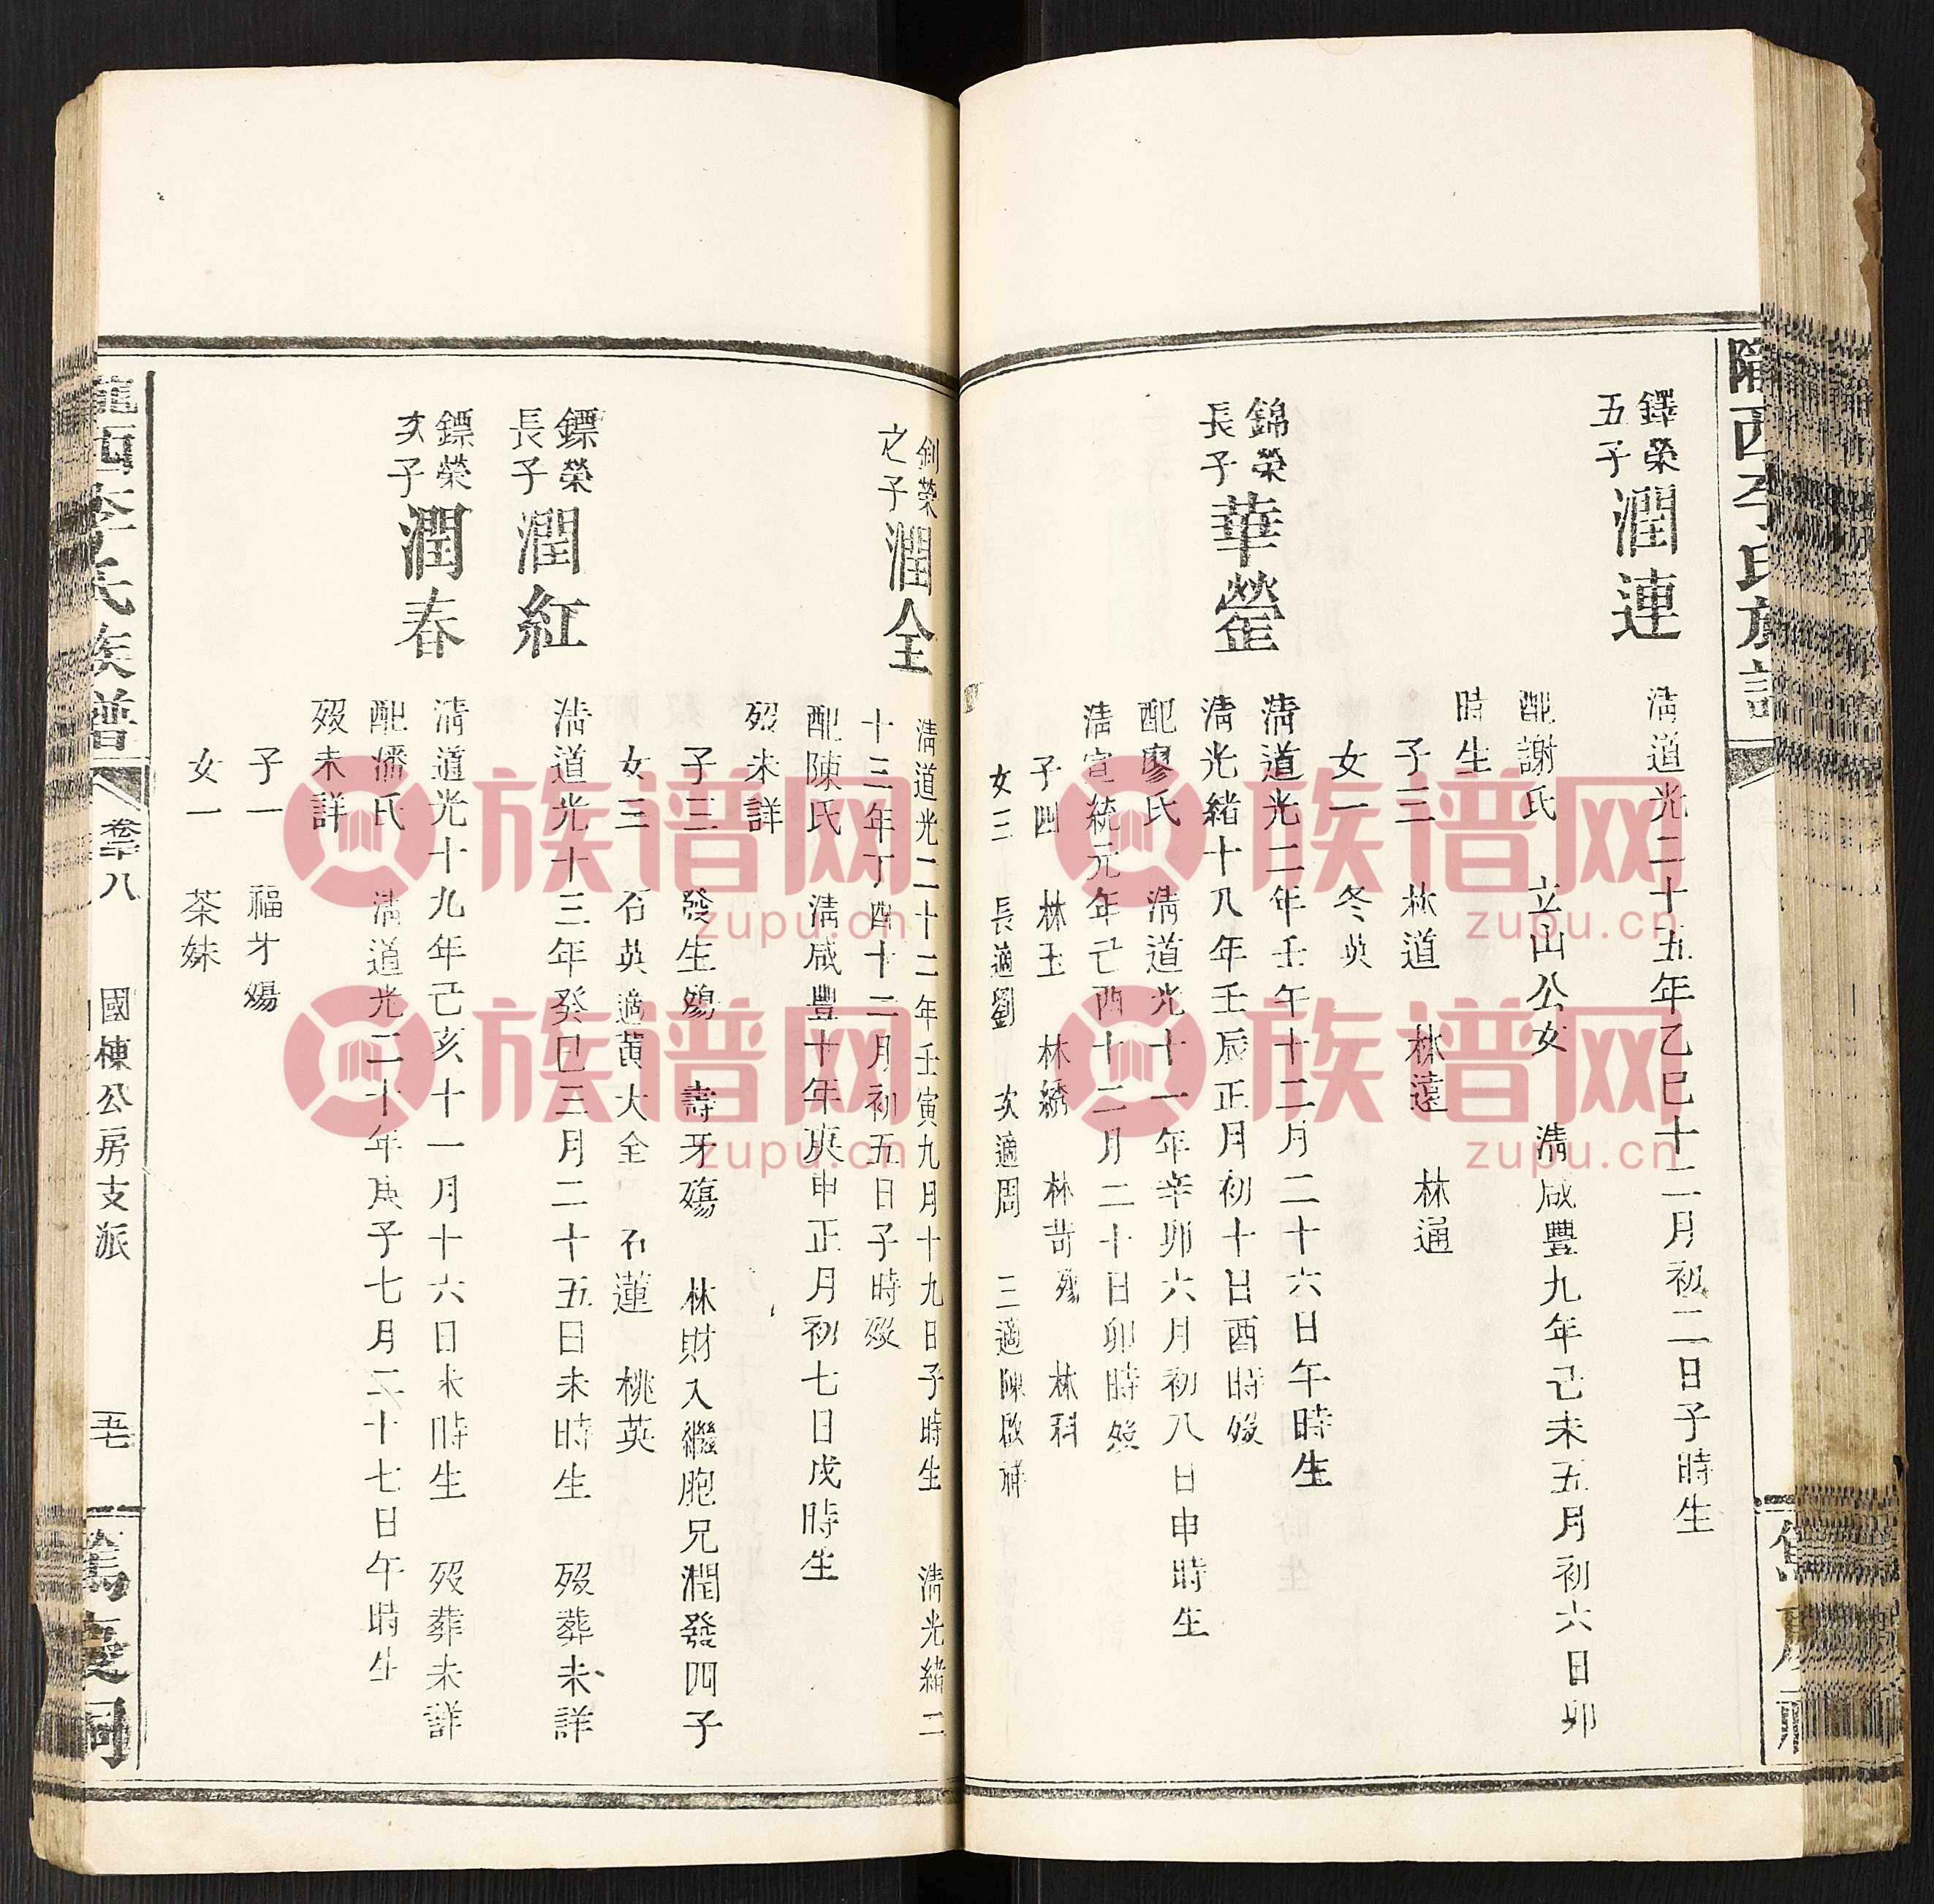 隴西李氏族譜
鐸榮
五子
潤連
清道光二十五年乙巳十二月初二日子時生
配謝氏 立山公女 清咸豐九年己未五月初六日卯
時生
子三 林道 林遠 林通
女一 冬英
錦榮
長子
華
清道光二年壬午十二月二十六日午時生
清光緒十八年壬辰正月初十日酉時歿
配廖氏 清道光十一年辛卯六月初八日申時生
清宣統元年己酉十二月二十日卯時歿
子四 林玉 林綉 林苛殤 林科
女三 長適劉 次適周 三適陳啟祥
釗榮
之子
潤全
清道光二十二年壬寅九月十九日子時生 清光緒二
十三年丁酉十二月初五日子時歿
配陳氏 清咸豐十年庚申正月初七日戌時生
歿未詳
子三 發生殤 壽牙殤 林財入繼胞兄潤發四子
女三 石英適黃大全 石蓮 桃英
鏢榮
長子
潤紅
清道光十三年癸巳三月二十五日未時生 歿葬未詳
鏢榮
次子
潤春
清道光十九年己亥十一月十六日未時生 歿葬未詳
配潘氏 清道光二十年庚子七月二十七日午時生
歿未詳
子一 福牙殤
女一 茶妹
隴西李氏族譜
卷十八
國棟公房支派
五七
篤慶祠
族谱网
zupu.cn
族谱网
zupu.cn
族谱网
zupu.cn
族谱网
zupu.cn